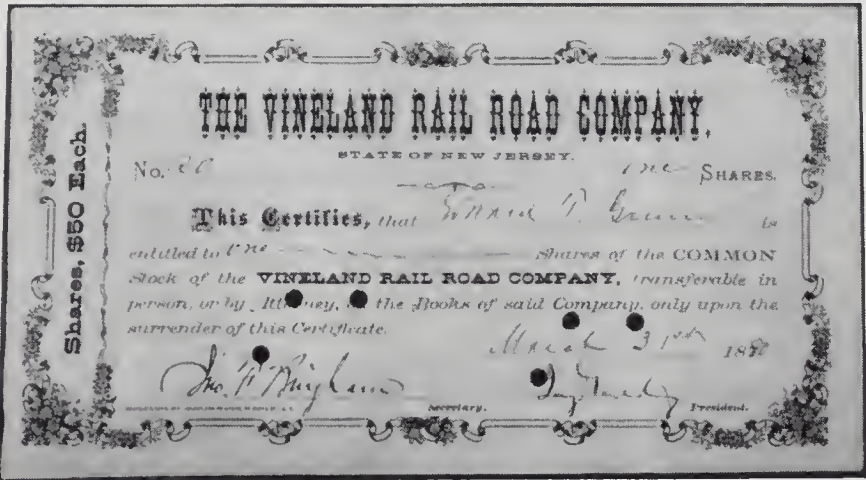 Shares, $50 Each.
THE VINELAND RAIL ROAD COMPANY.
STATE OF NEW JERSEY.
No. 80 one SHARES.
This Certifies, that Edward P. is
entitled to One Shares of the COMMON
Stock of the VINELAND RAIL ROAD COMPANY, transferable in
person, or by Attorney, on the Books of said Company, only upon the
surrender of this Certificate.
March 31st 18
Jno. P. Bingham
Secretary. President.